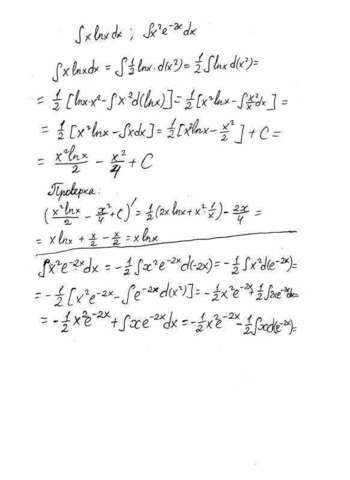 ∫x lnx dx ; ∫x²e^{-2x}dx
∫x lnx dx = ∫½ lnx · d(x²) = ½∫lnx d(x²) =
= ½[lnx·x² - ∫x²d(lnx)] = ½[x²lnx - ∫x²/x dx] =
= ½[x²lnx - ∫xdx] = ½[x²lnx - x²/2] + C =
= x²lnx/2 - x²/4 + C
Проверка:
(x²lnx/2 - x²/4 + C)' = ½(2x lnx + x²·1/x) - 2x/4 =
= x lnx + x/2 - x/2 = x lnx
∫x²e^{-2x}dx = -½∫x²e^{-2x}d(-2x) = -½∫x²d(e^{-2x}) =
= -½[x²e^{-2x} - ∫e^{-2x}d(x²)] = -½x²e^{-2x} + ½∫2xe^{-2x}dx =
= -½x²e^{-2x} + ∫xe^{-2x}dx = -½x²e^{-2x} - ½∫xd(e^{-2x}) =